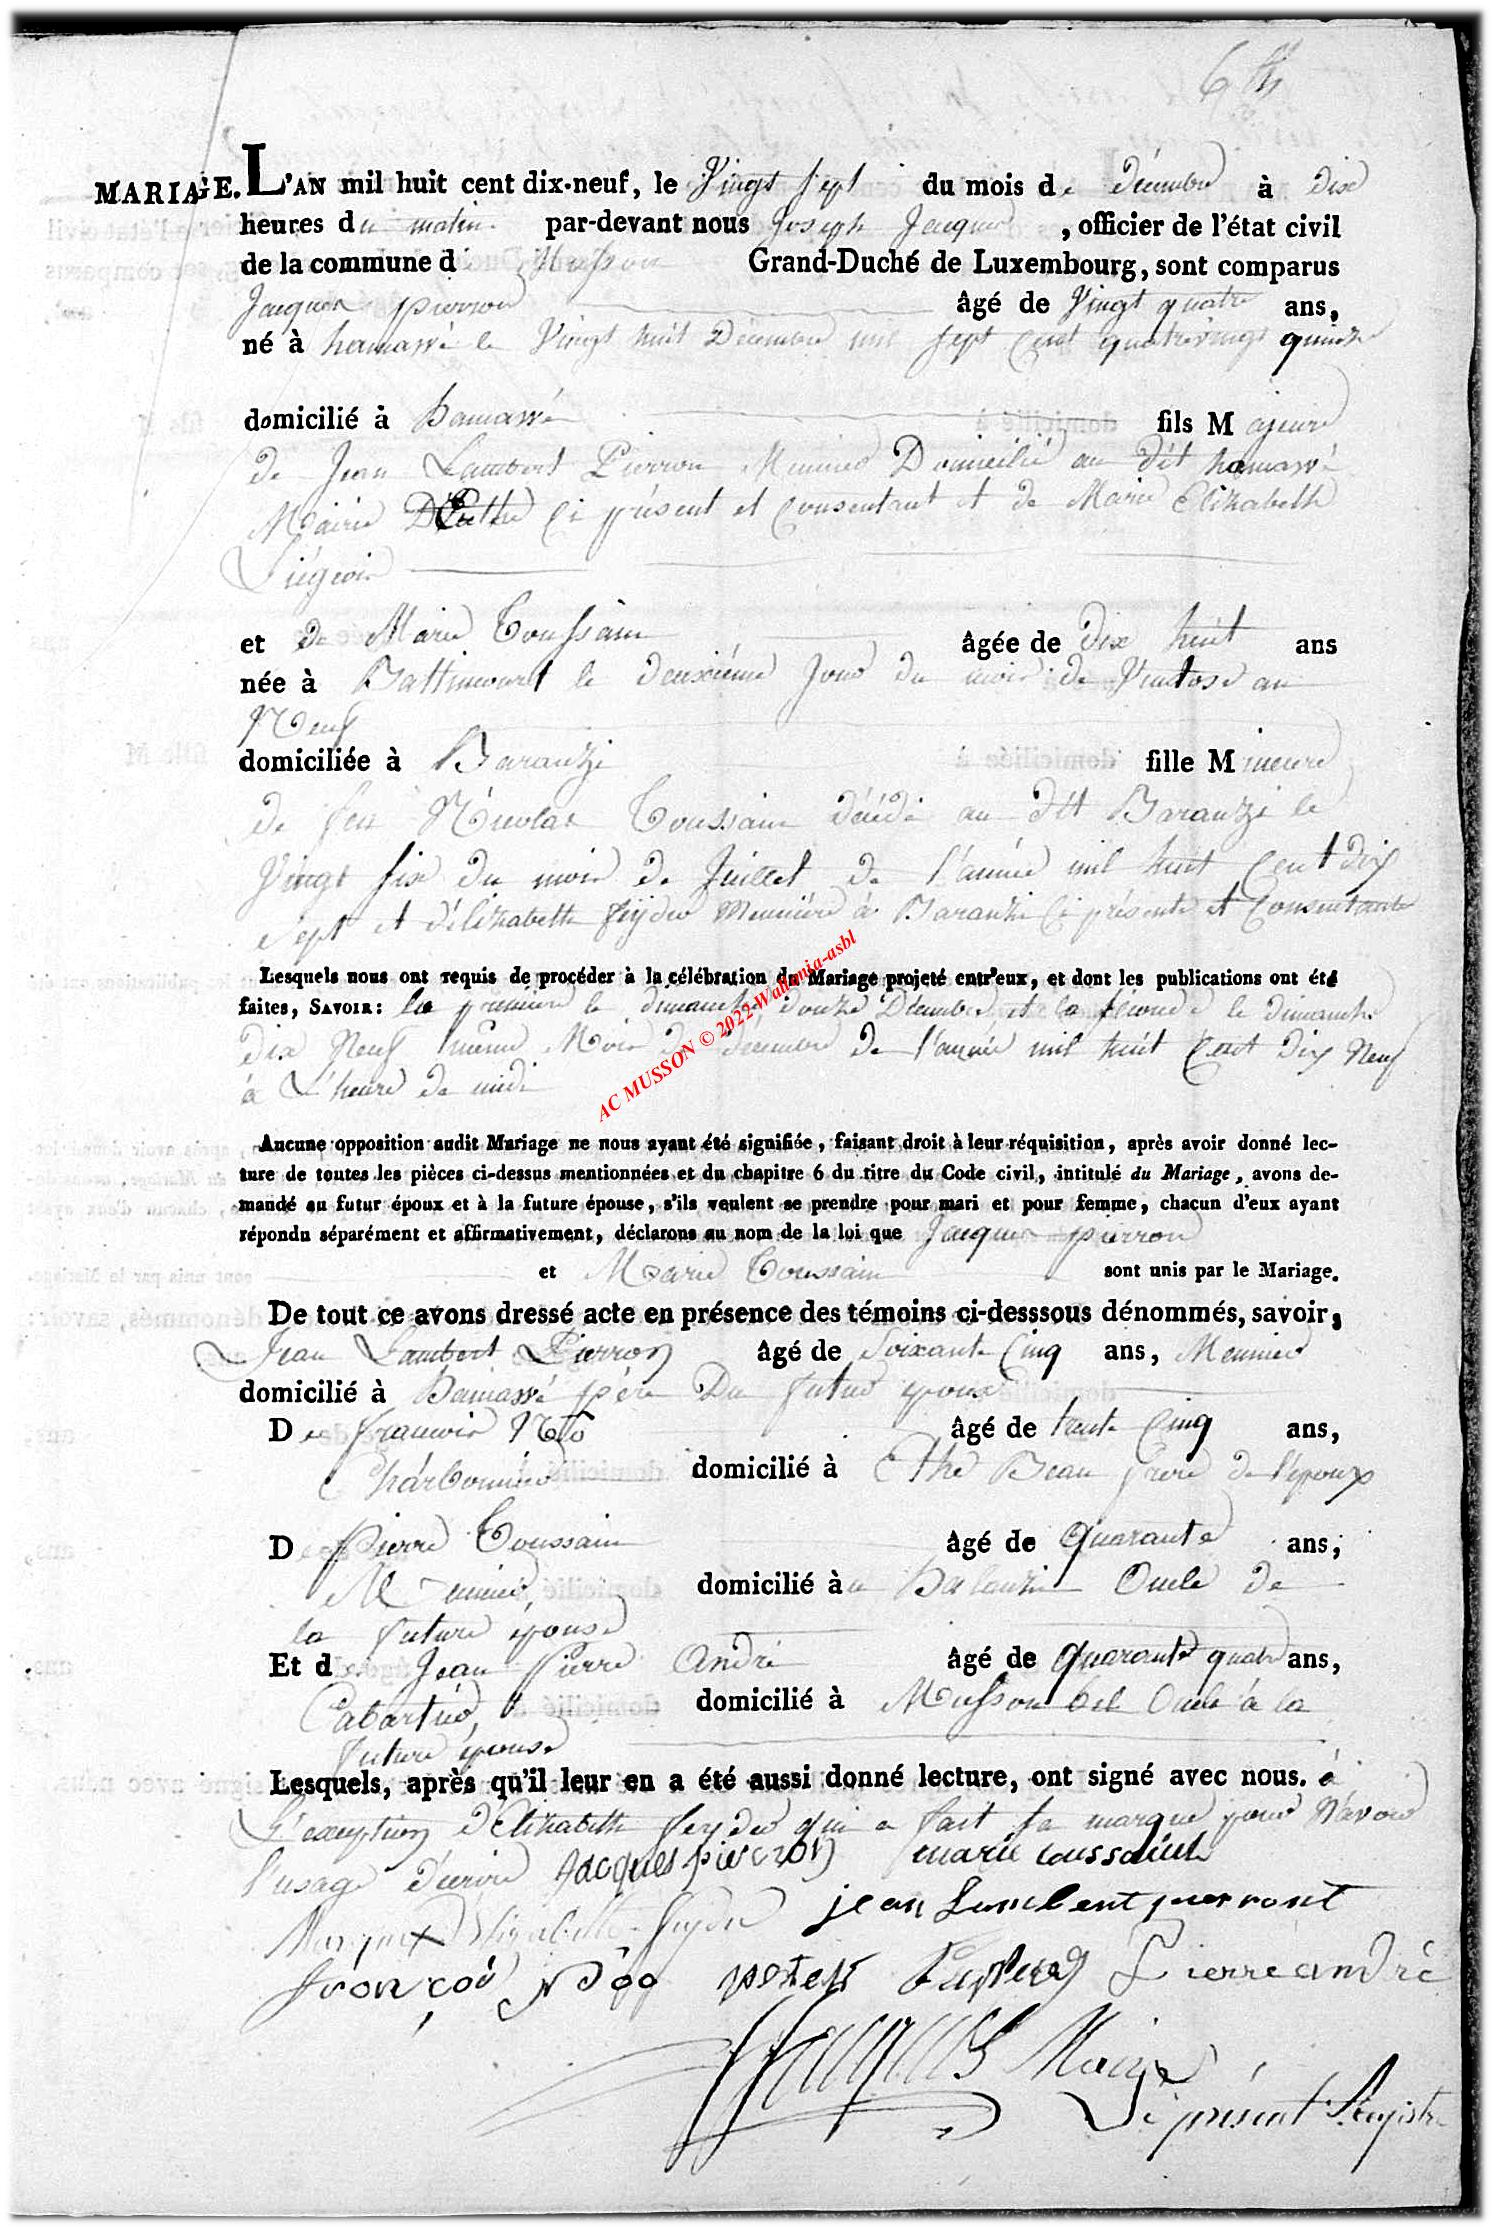 6
MARIAGE. L'AN mil huit cent dix-neuf, le Vingt Sept du mois de décembre à dix
heures du matin par-devant nous Joseph Jacques, officier de l'état civil
de la commune de Musson Grand-Duché de Luxembourg, sont comparus
Jacques pierron âgé de Vingt quatre ans,
né à hamawé le Vingt huit Décembre mil sept Cent quatrevingt quinze
domicilié à hamawé fils Majeur
de Jean Lambert Pierron Meunier Domicilié au dit hamawé
Mairie D'Ethe Ci présent et Consentant et de Marie Elizabeth
Liégeois
et de Marie Toussain âgée de dix huit ans
née à Battincourt le deuxiéme Jour du mois de Ventose an
Neuf
domiciliée à Baranzi fille Mineure
de feu Nicolas Toussain décédé au dit Baranzi le
Vingt six du mois de Juillet de l'année mil huit Cent dix
sept et d'élizabeth feyder Meuniére à Baranzi Ci présente et Consentante
Lesquels nous ont requis de procéder à la célébration du Mariage projeté entr'eux, et dont les publications ont été
faites, SAVOIR: la premiere le dimanche douze Décembre et la seconde le dimanche
dix Neuf même Mois de décembre de l'année mil huit Cent dix Neuf
à L'heure de midi
AC MUSSON © 2022-Wallonia-asbl
Aucune opposition audit Mariage ne nous ayant été signifiée, faisant droit à leur réquisition, après avoir donné lec-
ture de toutes les pièces ci-dessus mentionnées et du chapitre 6 du titre du Code civil, intitulé du Mariage, avons de-
mandé au futur époux et à la future épouse, s'ils veulent se prendre pour mari et pour femme, chacun d'eux ayant
répondu séparément et affirmativement, déclarons au nom de la loi que Jacques pierron
et Marie Toussain sont unis par le Mariage.
De tout ce avons dressé acte en présence des témoins ci-desssous dénommés, savoir,
Jean Lambert Pierron âgé de Soixante Cinq ans, Meunier
domicilié à hamawé père Du futur epoux
De francois Noo âgé de trente Cinq ans,
Charbonnier domicilié à Ethe Beau frere de l'époux
De pierre Toussain âgé de quarante ans,
Meunier domicilié à Baranzi Oncle de
la future épouse
Et de Jean Pierre André âgé de quarante quatre ans,
Cabartier domicilié à Musson bel Oncle à la
future épouse
Lesquels, après qu'il leur en a été aussi donné lecture, ont signé avec nous. à
L'exception d'Elizabeth feyder qui a fait sa marque pour N'avoir
l'usage d'écrire Jacques pierron marie toussaint
Marque X Elizabette feyder jean Lambent pierront
françoi Noo peter Pierre andré
Jacques Maire
Le présent Registre